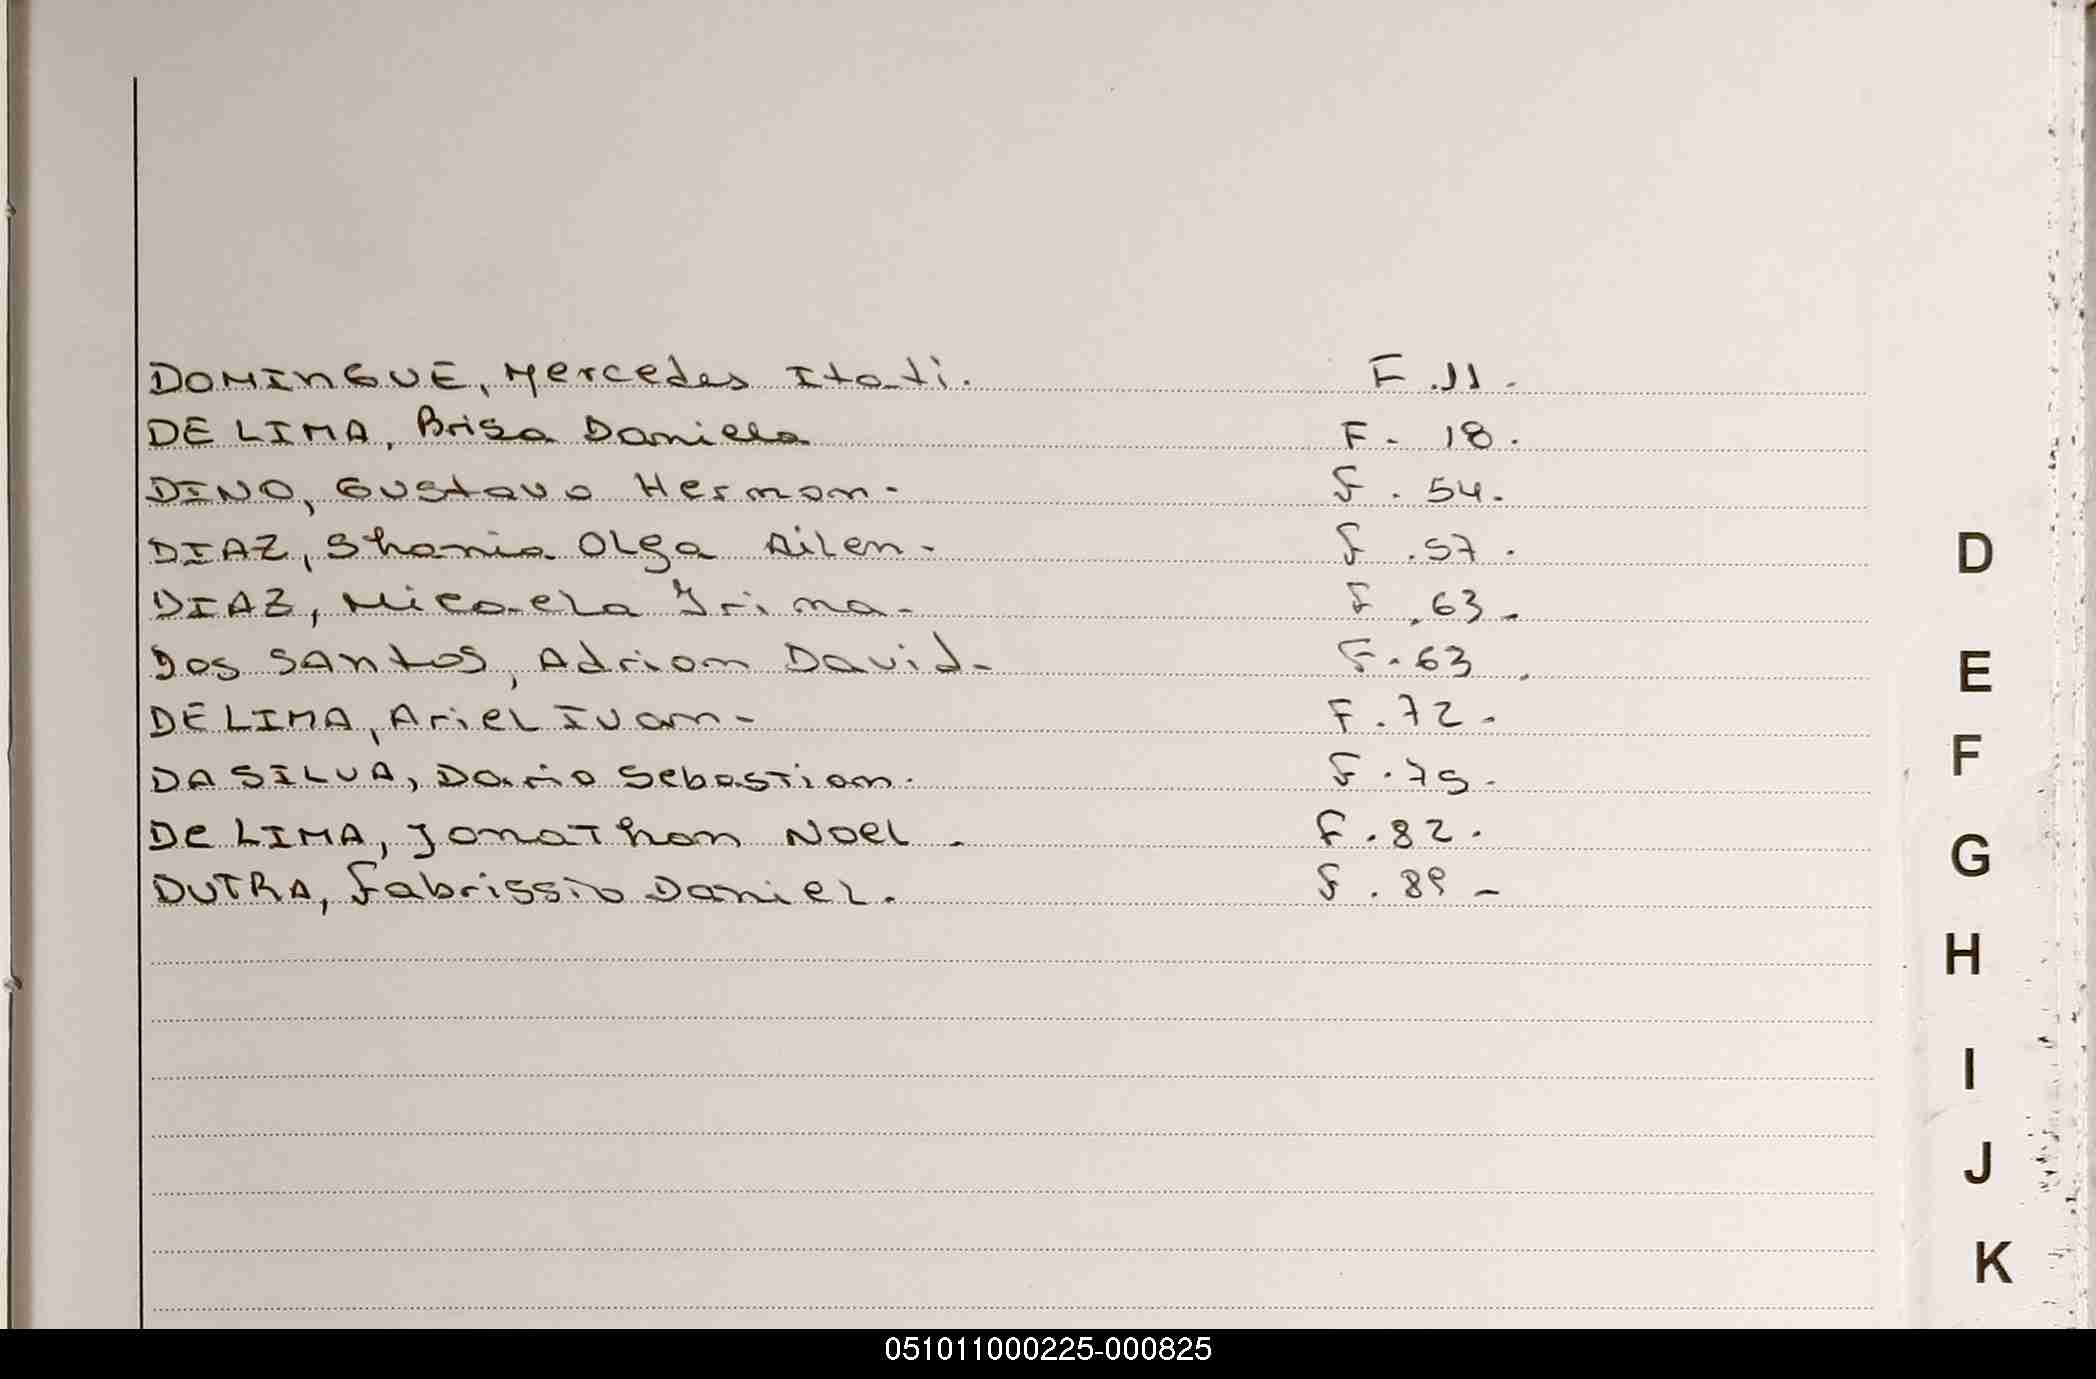 DOMINGUE, Mercedes Itati. F.11.
DE LIMA, Brisa Daniela F. 18.
DINO, Gustavo Hernan. F. 54.
DIAZ, Shania Olga Ailen. F. 57.
DIAZ, Micaela Irina. F. 63.
DOS SANTOS, Adrian David. F. 63.
DE LIMA, Ariel Ivan. F. 72.
DA SILVA, Dario Sebastian. F. 75.
De LIMA, Jonathan Noel. F. 82.
DUTRA, Fabrissio Daniel. F. 89.
D
E
F
G
H
I
J
K
051011000225-000825